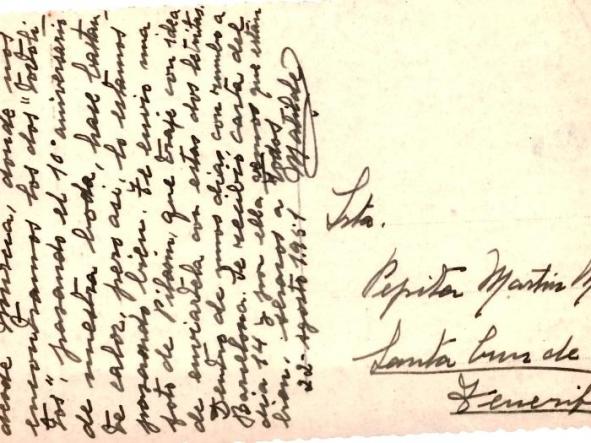 desde Murcia, donde nos
encontramos los dos "tortoli-
tos", pasando el 10º aniversario
de nuestra boda, hace bastan-
te calor, pero asi, lo estamos
pasando bien. Te envio una
foto de Pilarin, que traje con idea
de enviartela con estas dos letritas.
Dentro de unos dias, con rumbo a
Barcelona. Se recibió carta del
dia 14 y por ella vemos que están
bien, abrazos a todos
Matilde
22-agosto 1951
Srta.
Pepita Martin
Santa Cruz de
Tenerif